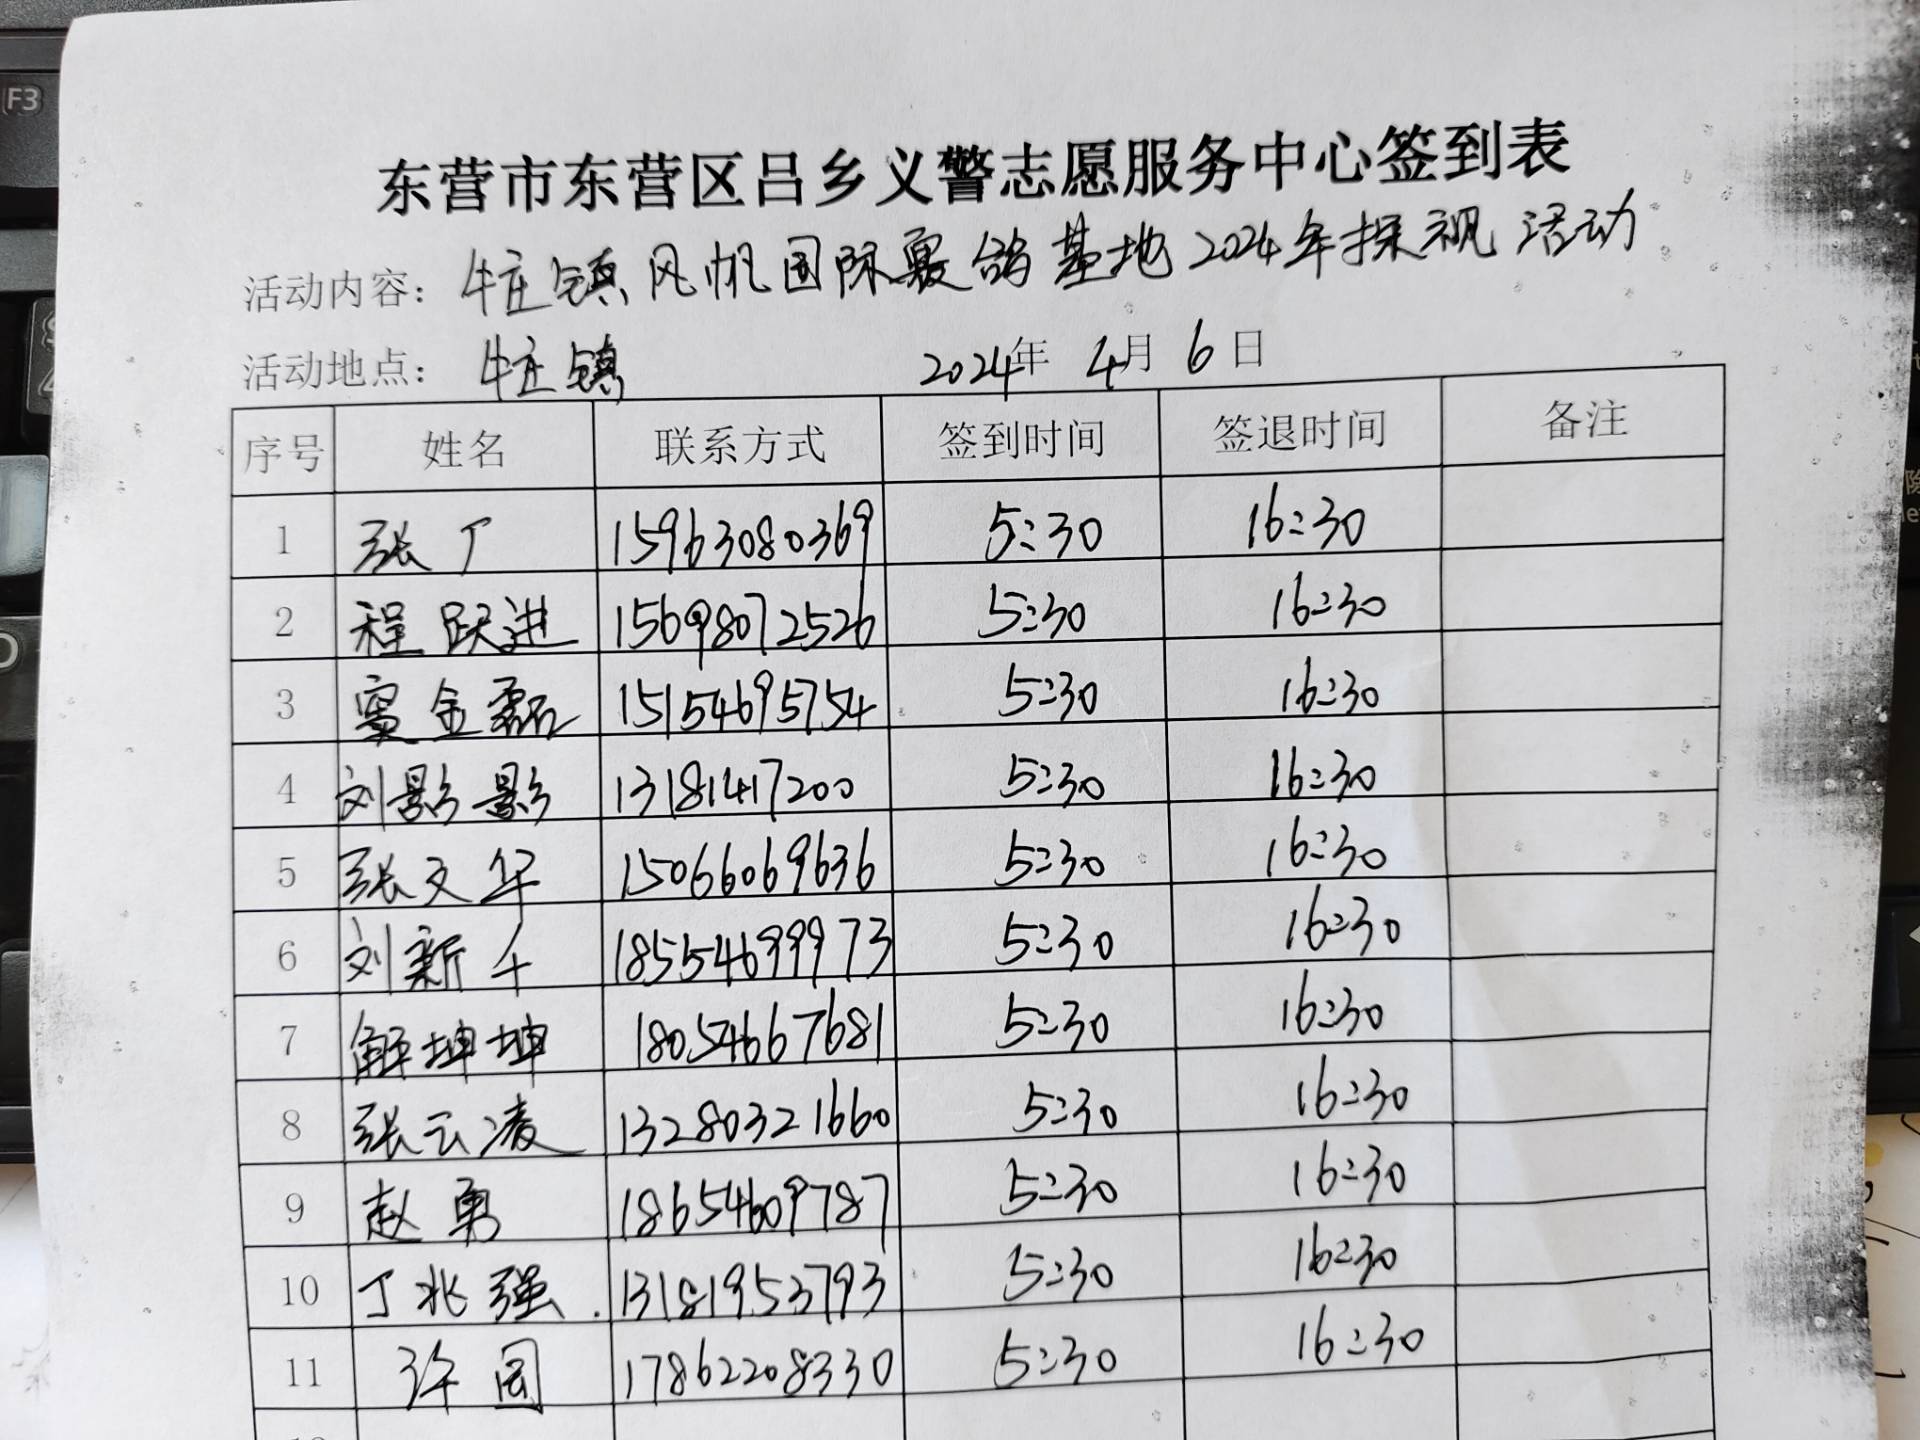 东营市东营区吕乡义警志愿服务中心签到表
活动内容：牛庄镇风帆国际赛鸽基地2024年探视活动
活动地点：牛庄镇 2024年 4月 6日
序号 姓名 联系方式 签到时间 签退时间 备注
1 张丁 15963080369 5:30 16:30
2 程跃进 15698072526 5:30 16:30
3 窦金磊 15154695754 5:30 16:30
4 刘影影 13181417200 5:30 16:30
5 张文华 15066069636 5:30 16:30
6 刘新千 18554699973 5:30 16:30
7 解坤坤 18054667681 5:30 16:30
8 张云凌 13280321660 5:30 16:30
9 赵勇 18654609787 5:30 16:30
10 丁兆强 13181953793 5:30 16:30
11 许园 17862208330 5:30 16:30
F3